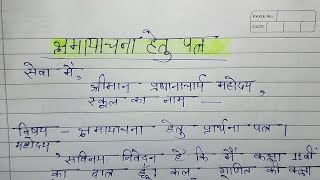 PAGE NO.
DATE
क्षमायाचना हेतु पत्र
सेवा में,
श्रीमान प्रधानाचार्य महोदय,
स्कूल का नाम —
विषय – क्षमायाचना हेतु प्रार्थना पत्र।
महोदय,
सविनय निवेदन है कि मैं कक्षा 11वीं
का छात्र हूँ। कल गणित की कक्षा